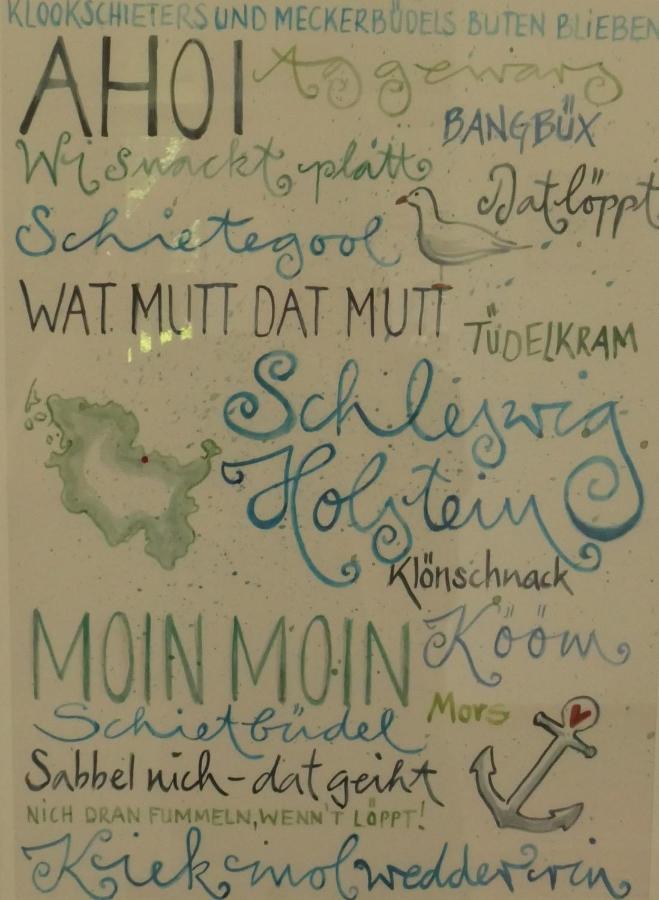 KLOOKSCHIETERS UND MECKERBÜDELS BUTEN BLIEBEN
AHOI
Aggewars
BANGBÜX
Wi snackt platt
Dat löppt
Schietegool
WAT MUTT DAT MUTT
TÜDELKRAM
Schleswig
Holstein
Klönschnack
MOIN MOIN
Kööm
Schietbüdel
Mors
Sabbel nich - dat geiht
NICH DRAN FUMMELN, WENN'T LÖPPT!
Kiek mol wedder rin